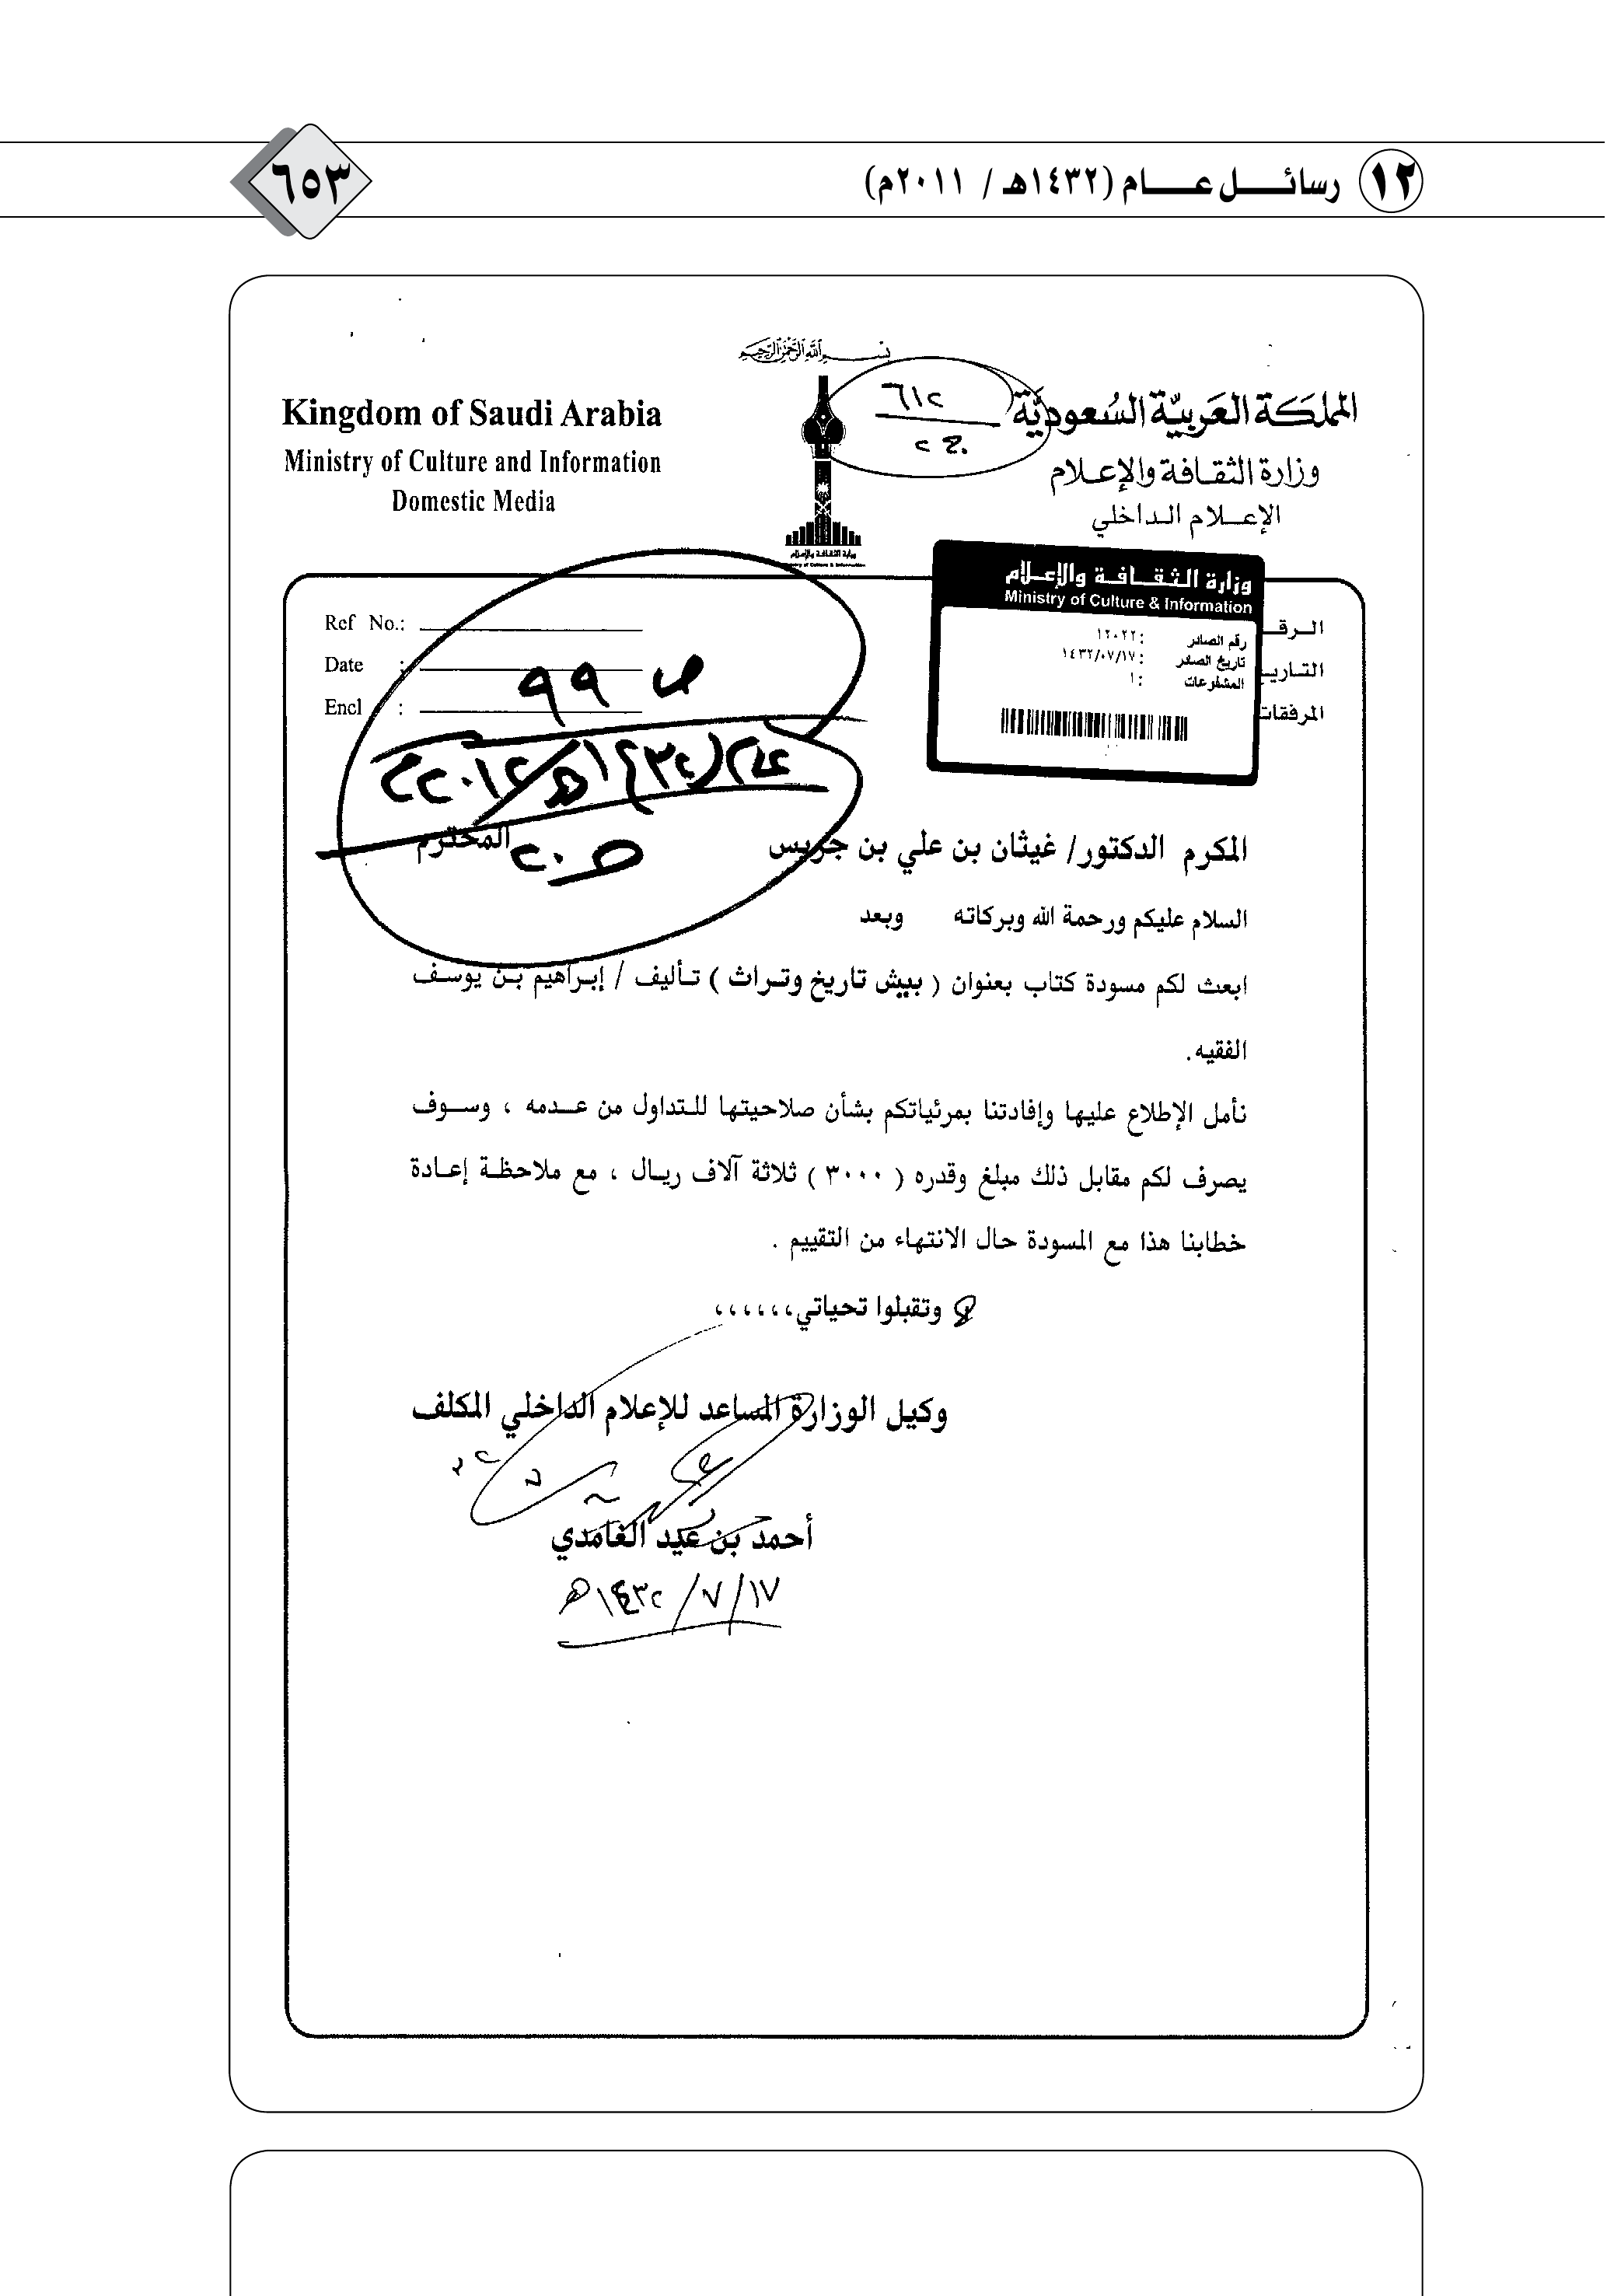 ١٢ رسائل عام (١٤٣٢هـ / ٢٠١١م)
٦٥٣
بسم الله الرحمن الرحيم
المملكة العربية السعودية
وزارة الثقافة والإعلام
الإعلام الداخلي
Kingdom of Saudi Arabia
Ministry of Culture and Information
Domestic Media
٦١٢
ج٢٠
وزارة الثقافة والإعلام
Ministry of Culture & Information
وزارة الثقافة والإعلام
Ministry of Culture & Information
رقم الصادر : ١٢٠٢٢
تاريخ الصادر : ١٤٣٢/٠٧/١٧
المشفوعات : ١
الرقـ
التاريـ
المرفقات
Ref No.:
Date :
Encl :
ص ٩٩
المكرم الدكتور/ غيثان بن علي بن جريس المحترم
السلام عليكم ورحمة الله وبركاته وبعد
ابعث لكم مسودة كتاب بعنوان ( بيش تاريخ وتراث ) تأليف / إبراهيم بن يوسف
الفقيه.
نأمل الإطلاع عليها وإفادتنا بمرئياتكم بشأن صلاحيتها للتداول من عدمه ، وسوف
يصرف لكم مقابل ذلك مبلغ وقدره ( ٣٠٠٠ ) ثلاثة آلاف ريال ، مع ملاحظة إعادة
خطابنا هذا مع المسودة حال الانتهاء من التقييم .
وتقبلوا تحياتي،،،،،،
وكيل الوزارة المساعد للإعلام الداخلي المكلف
أحمد بن عيد الغامدي
١٧/ ٧/ ١٤٣٢هـ